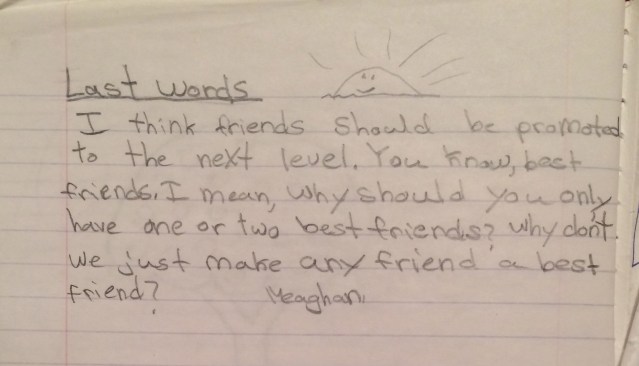 Last words
I think friends should be promoted
to the next level. You know, best
friends. I mean, why should you only
have one or two best friends? why don't
we just make any friend a best
friend? Meaghan